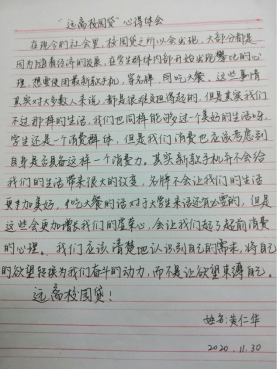 “远离校园贷”心得体会
在现今的社会里，校园贷之所以会出现，大部分都是
因为随着经济的发展，在学生群体内部开始出现攀比的心
理，想要使用最新款手机，穿名牌，同吃大餐，这些事情
其实对大多数人来说，都是很难负担得起的，但是其实我们
不过那样的生活，我们也同样能够过一个美好的生活的。
学生还是一个消费群体，但是我们消费也应该考虑到
自身是否具备这样一个消费力。其实新款手机并不会给
我们的生活带来很大的改变，名牌不会让我们的生活
更加美好，吃大餐的话对于大学生来说还有必要的，但是
这些会更加增长我们的虚荣心，会让我们起了超前消费
的心理。我们应该清楚地认识到自己的需求，将自己
的欲望转换为我们奋斗的动力，而不是让欲望束缚自己。
远离校园贷！
姓名：黄仁华
2020.11.30